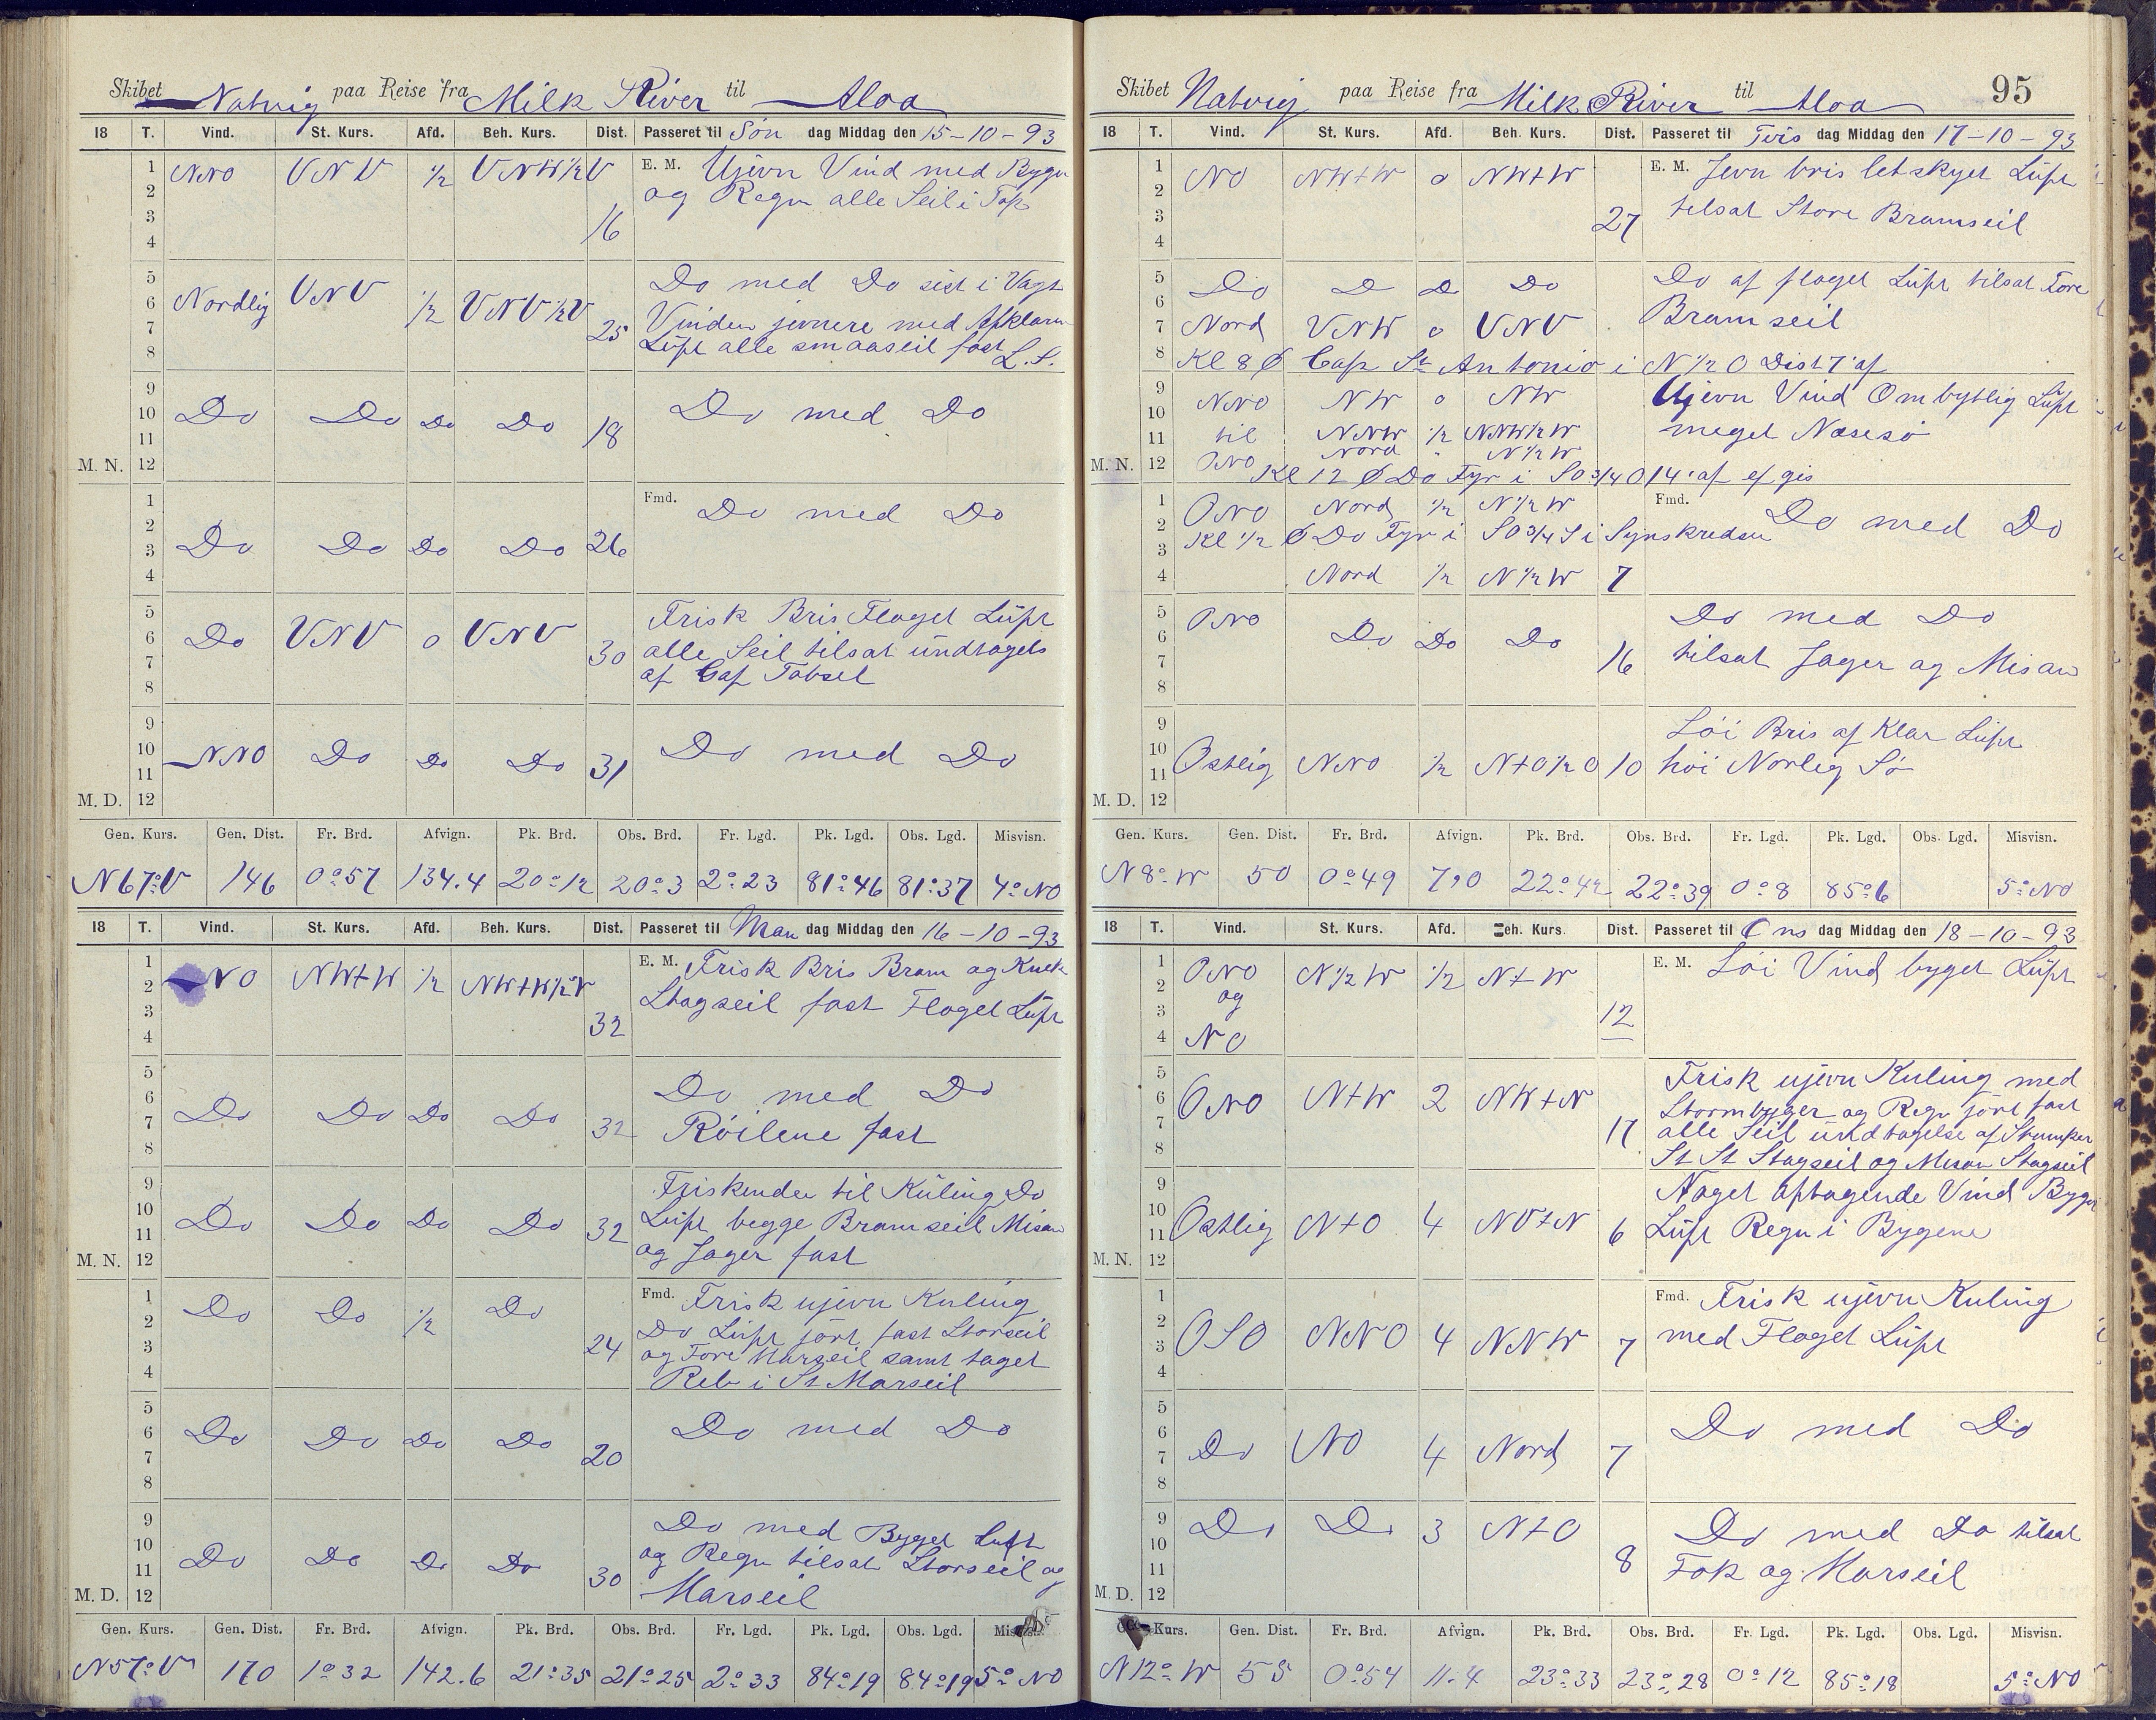 Skibet Natvig paa Reise fra Milk River til Aloa
18 T. Vind. St. Kurs. Afd. Beh. Kurs. Dist. Passeret til Søn dag Middag den 15-10-93
1 NNO VNV ½ VNW½V E. M. Ujevn Vind med Byger
2 og Regn alle Seil i Top
3 16
4
5 Do med Do sist i Vagt
6 Nordlig VNV ½ VNV½V Vinden jevnere med
7 25 Lüft alle smaaseil fast L.S.
8
9
10 Do Do Do Do 18 Do med Do
11
M. N. 12
1 Fmd. Do med Do
2
3 Do Do Do Do 26
4
5 Frisk Bris Flaget Lüft
6 Do VNV 0 VNV alle Seil tilsat undtagels
7 30 af Gaf Tobseil
8
9
10 NNO Do Do Do 31 Do med Do
11
M. D. 12
Gen. Kurs. Gen. Dist. Fr. Brd. Afvign. Pk. Brd. Obs. Brd. Fr. Lgd. Pk. Lgd. Obs. Lgd. Misvisn.
N67°V 146 0°57 134.4 20°12 20°3 2°23 81°46 81°37 4°NO
18 T. Vind. St. Kurs. Afd. Beh. Kurs. Dist. Passeret til Man dag Middag den 16-10-93
1 NO NW+W ½ NW+W½V E. M. Frisk Bris Bram og
2 Stagseil fast Flaget Lüft
3 32
4
5 Do med Do
6 Do Do Do Do
7 32 Röilene fast
8
9 Friskender til Küling Do
10 Do Do Do Do 32 Lüft begge Bramseil Misan
11 og Jager fast
M. N. 12
1 Do Do ½ Do Fmd. Frisk ujevn Kuling
2 Do Lüft gjört fast Storseil
3 24 og Fore Marseil samt taget
4 Reb i St Marseil
5
6 Do Do Do Do Do med Do
7 20
8
9 Do med Byget Luft
10 og Regn tilsat Storseil og
11 Do Do Do Do 30 Marseil
M. D. 12
Gen. Kurs. Gen. Dist. Fr. Brd. Afvign. Pk. Brd. Obs. Brd. Fr. Lgd. Pk. Lgd. Obs. Lgd. Misvisn.
N57°V 170 1°32 142.6 21°35 21°25 2°33 84°19 84°19 5°NO
95
Skibet Natvig paa Reise fra Milk River til Aloa
18 T. Vind. St. Kurs. Afd. Beh. Kurs. Dist. Passeret til Tirs dag Middag den 17-10-93
1 E. M. Jevn bris letskyet Lüft
2 NO NW+W 0 NW+W tilsat Store Bramseil
3 27
4
5 Do D D Do Do af flaget Lüft tilsat Fore
6 Bramseil
7 Nord VNW 0 VNV
8 Kl 8 Ø Cap St Antonio i N½O Dist 7' af
9 NNO NW 0 NW Ujevn Vind Ombytlig Lüft
10 meget Næsesö
11 til NNW ½ NNW½W
Nord " N½W
M. N. 12 ONO Kl 12 Ø Do Fyr i SO¾O 14' af ef gis
1 ONO Nord ½ N½W Fmd. Do med Do
2 Kl ½ Ø Do Fyr i SO¾S i Synskredsen
3
4 Nord ½ N½W 7
5 ONO Do med Do
6 Do Do Do
7 16 tilsat Jager og Misan
8
9 Löi Bris af Klar Lüft
10 Ostlig NNO ½ N+O½O 10 höi Norlig Sö
11
M. D. 12
Gen. Kurs. Gen. Dist. Fr. Brd. Afvign. Pk. Brd. Obs. Brd. Fr. Lgd. Pk. Lgd. Obs. Lgd. Misvisn.
N8°W 50 0°49 7,0 22°42 22°39 0°8 85°6 5°NO
18 T. Vind. St. Kurs. Afd. Beh. Kurs. Dist. Passeret til Ons dag Middag den 18-10-93
1 ONO N½W ½ N+W E. M. Löi Vind byget Lüft
2 og
3 12
4 NO
5 Frisk ujevn Kuling med
6 ONO N+W 2 NW+N Stormbyger og Regn gjört fast
7 17 alle Seil undtagelse af Stumper
8 St St Stagseil og Mesan Stagseil
9 Noget aftagende Vind Byget
10 Ostlig N+O 4 NV+N 6 Lüft Regn i Bygene
11
M. N. 12
1 Fmd. Frisk ujevn Kuling
2 OSO NNO 4 NNW 7 med Flaget Lüft
3
4
5 Do med Do
6 Do NO 4 Nord 7
7
8
9 Do Do 3 N+O Do med Do tilsat
10 8 Fok og Marseil
11
M. D. 12
Kurs. Gen. Dist. Fr. Brd. Afvign. Pk. Brd. Obs. Brd. Fr. Lgd. Pk. Lgd. Obs. Lgd. Misvisn.
N12°W 55 0°54 11.4 23°33 23°28 0°12 85°18 5°NO